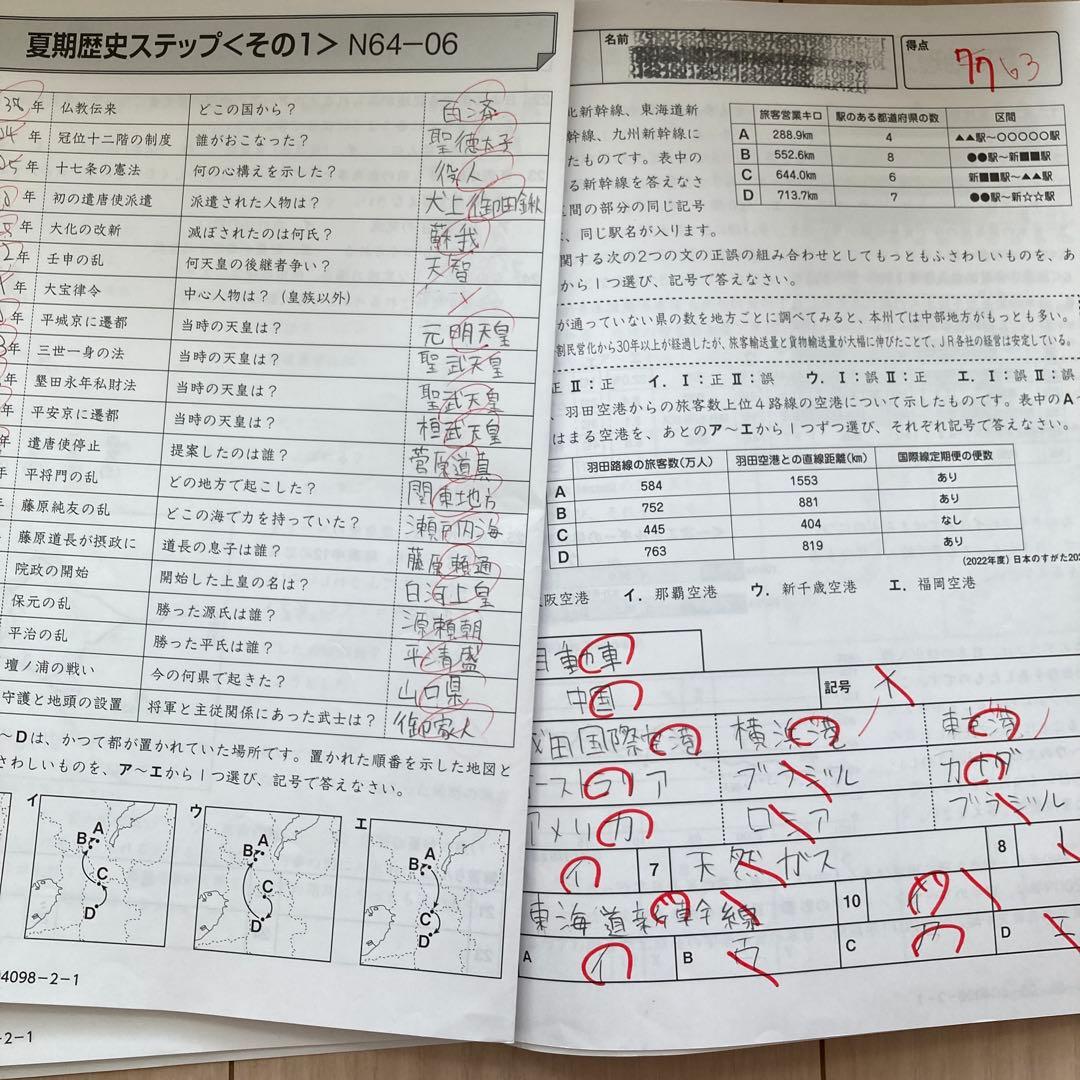 夏期歴史ステップ<その1> N64-06
38年 仏教伝来 どこの国から? 百済
04年 冠位十二階の制度 誰がおこなった? 聖徳太子
05年 十七条の憲法 何の心構えを示した? 役人
年 初の遣唐使派遣 派遣された人物は? 犬上御田鍬
年 大化の改新 滅ぼされたのは何氏? 蘇我
2年 壬申の乱 何天皇の後継者争い? 天智
年 大宝律令 中心人物は?(皇族以外)
年 平城京に遷都 当時の天皇は? 元明天皇
3年 三世一身の法 当時の天皇は? 聖武天皇
年 墾田永年私財法 当時の天皇は? 聖武天皇
年 平安京に遷都 当時の天皇は? 桓武天皇
年 遣唐使停止 提案したのは誰? 菅原道真
年 平将門の乱 どの地方で起こした? 関東地方
藤原純友の乱 どこの海で力を持っていた? 瀬戸内海
藤原道長が摂政に 道長の息子は誰? 藤原頼通
院政の開始 開始した上皇の名は? 白河上皇
保元の乱 勝った源氏は誰? 源頼朝
平治の乱 勝った平氏は誰? 平清盛
壇ノ浦の戦い 今の何県で起きた? 山口県
守護と地頭の設置 将軍と主従関係にあった武士は? 御家人
~Dは、かつて都が置かれていた場所です。置かれた順番を示した地図と
さわしいものを、ア~エから1つ選び、記号で答えなさい。
イ ウ エ
A B C D
A B C D
A B C D
4098-2-1
-2-1
名前 得点 77 63
北新幹線、東海道新
幹線、九州新幹線に
たものです。表中の
る新幹線を答えなさ
区間の部分の同じ記号
、同じ駅名が入ります。
旅客営業キロ 駅のある都道府県の数 区間
A 288.9km 4 ▲▲駅~○○○○○駅
B 552.6km 8 ●●駅~新■■駅
C 644.0km 6 新■■駅~▲▲駅
D 713.7km 7 ●●駅~新☆☆駅
関する次の2つの文の正誤の組み合わせとしてもっともふさわしいものを、あ
から1つ選び、記号で答えなさい。
が通っていない県の数を地方ごとに調べてみると、本州では中部地方がもっとも多い。
割民営化から30年以上が経過したが、旅客輸送量と貨物輸送量が大幅に伸びたことで、JR各社の経営は安定している。
正 Ⅱ:正 イ.Ⅰ:正 Ⅱ:誤 ウ.Ⅰ:誤 Ⅱ:正 エ.Ⅰ:誤 Ⅱ:誤
羽田空港からの旅客数上位4路線の空港について示したものです。表中のA~
はまる空港を、あとのア~エから1つずつ選び、それぞれ記号で答えなさい。
羽田路線の旅客数(万人) 羽田空港との直線距離(km) 国際線定期便の便数
A 584 1553 あり
B 752 881 あり
C 445 404 なし
D 763 819 あり
(2022年度) 日本のすがた202
阪空港 イ.那覇空港 ウ.新千歳空港 エ.福岡空港
自動車
中国 記号 イ
成田国際空港 横浜港 東京港
ーストロリア ブラジル カナダ
アメリカ ロシア ブラジル
イ 7 天然ガス 8
東海道新幹線 10
A イ B ウ C ア D エ